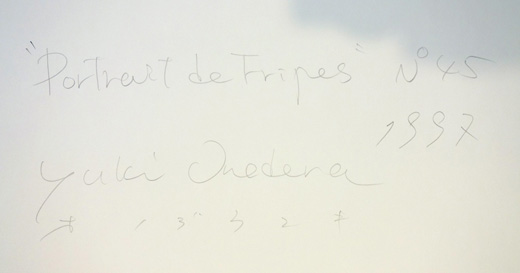 "Portrait de Fripes" N° 45
1997
Yuki Onodera
オノデラユキ